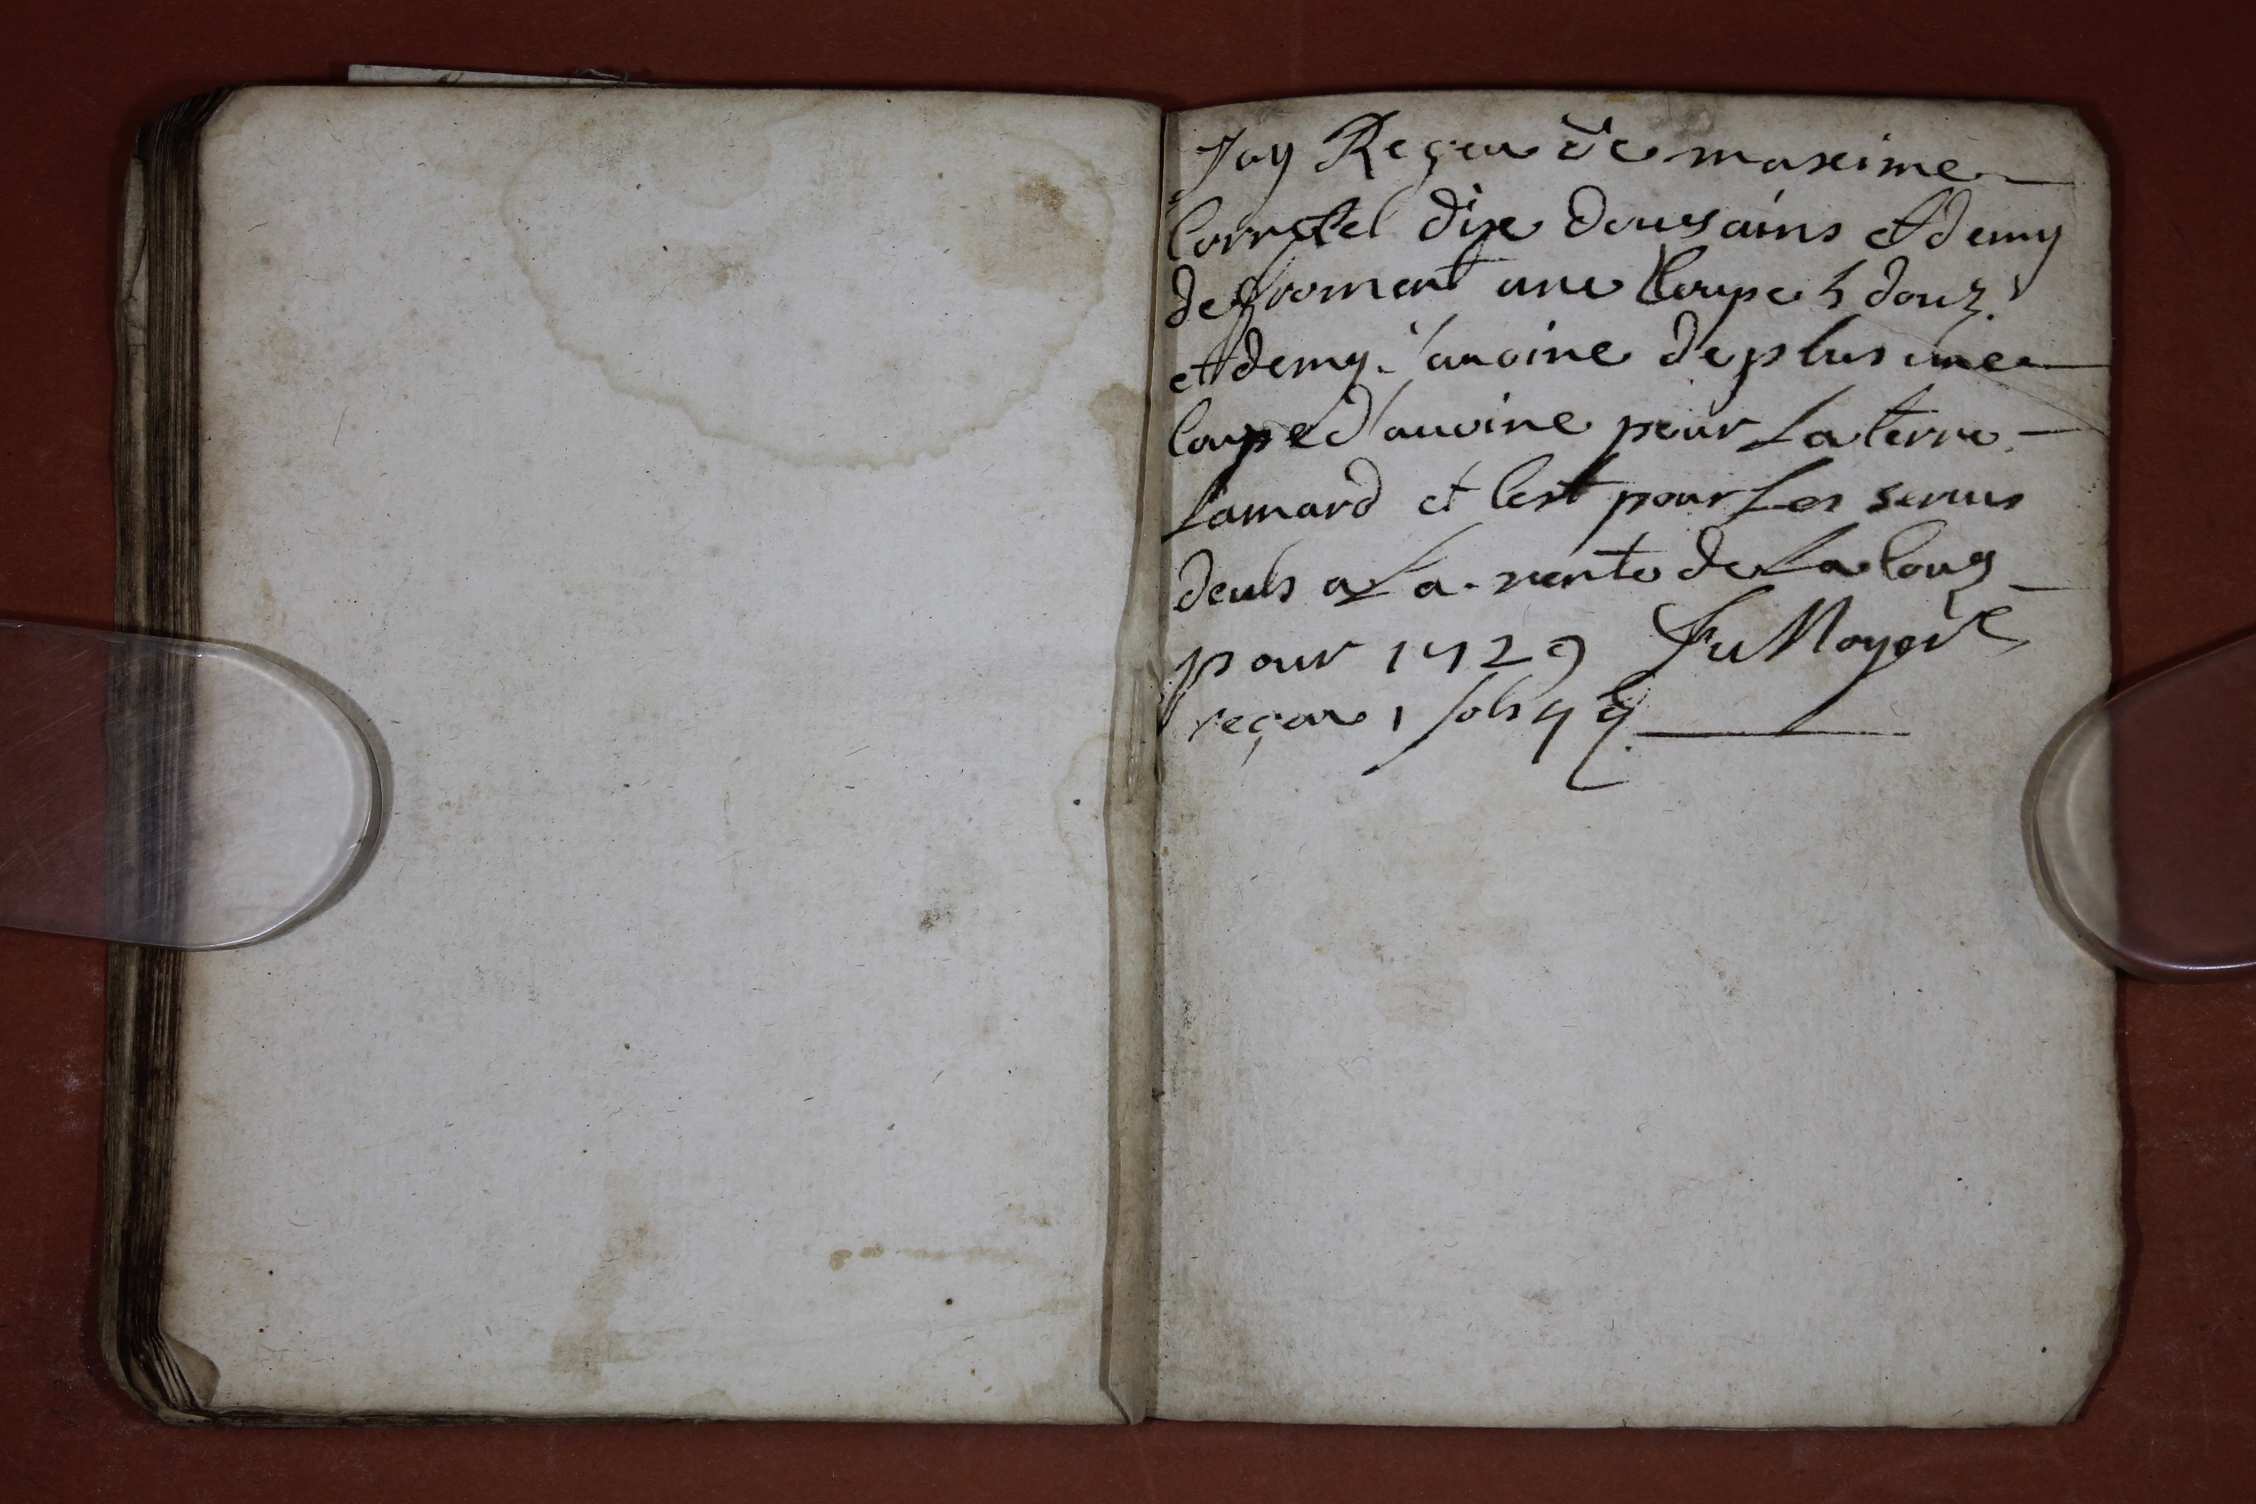 Jay Reçeu de maxime
Corratel dix dousains et demy
de froment une Coupe 5 douz.
et demy. auoine de plus une
Coupe d'auoine pour La terre
Lamard et Cest pour Les seruis
deubs a La rente de La Cour
pour 1729 Fu Moyert
reçeu 1 sols 4 d.